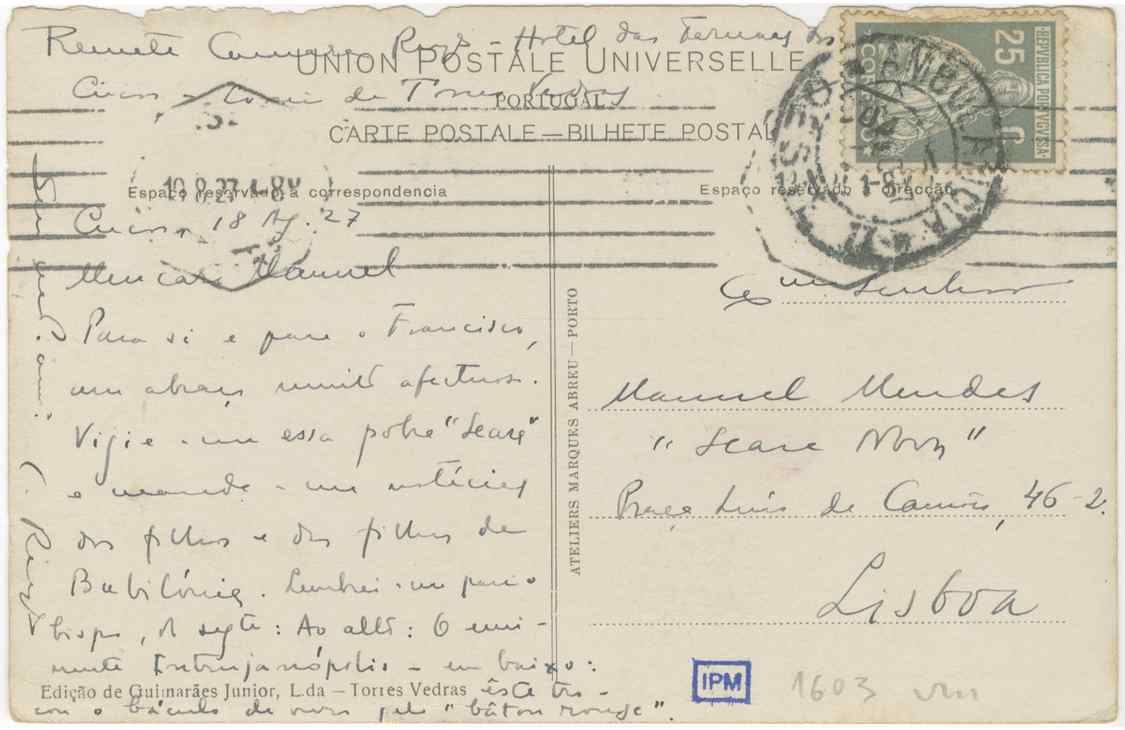 Remete Camara Reys - Hotel das Termas dos
UNION POSTALE UNIVERSELLE
Cucos - de Torres Vedras
PORTUGAL
CARTE POSTALE — BILHETE POSTAL
REPVBLICA PORTVGVESA
25 C
CORREIO
AMBULANCIA
Espaço reservado á correspondencia
Espaço reservado á direcção
Cucos, 18 Ag. 27
Meu caro Manuel
Para si e para o Francisco,
um abraço muito afectuoso.
Vigie-me essa pobre "Seara"
e mande-me notícias
dos filhos e das filhas de
Babilónia. Lembrei-me para o
bispo, o segte: Ao alto: O emi-
nente Intrujanópolis - em baixo:
êste tro-
cou o báculo de ouro pelo "bâton rouge".
C. Reys
Edição de Guimarães Junior, L.da — Torres Vedras
ATELIERS MARQUES ABREU — PORTO
Exmo Senhor
Manuel Mendes
"Seara Nova"
Praça Luís de Camões, 46-2.
Lisboa
IPM
1603